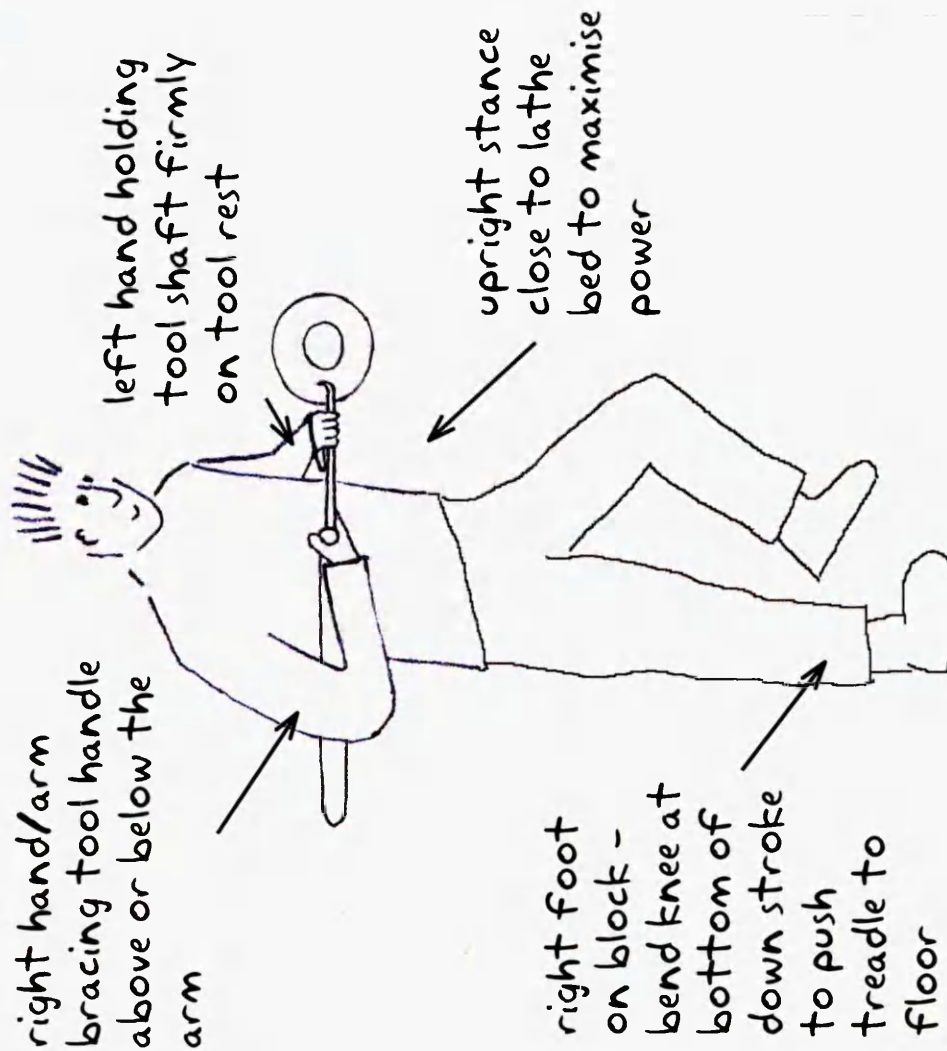 right hand/arm
bracing tool handle
above or below the
arm
left hand holding
tool shaft firmly
on tool rest
upright stance
close to lathe
bed to maximise
power
right foot
on block -
bend knee at
bottom of
down stroke
to push
treadle to
floor